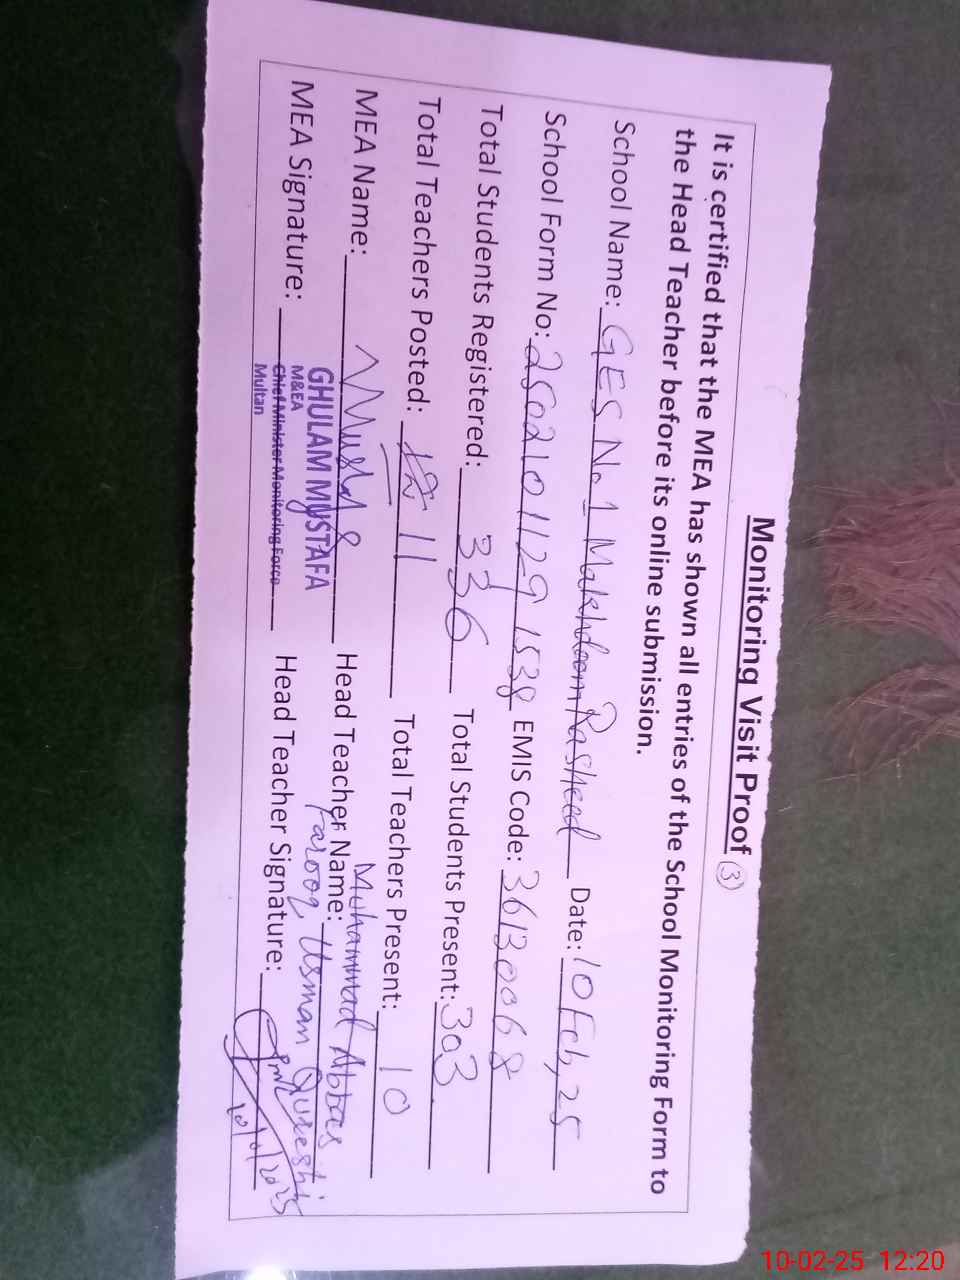 Monitoring Visit Proof ③
It is certified that the MEA has shown all entries of the School Monitoring Form to
the Head Teacher before its online submission.
School Name: GES No 1 Makhdoom Rasheed Date: 10 Feb, 25
School Form No: 2502101129 1538 EMIS Code: 36130068
Total Students Registered: 336 Total Students Present: 303
Total Teachers Posted: 11 Total Teachers Present: 10
Muhammad Abbas
MEA Name: Head Teacher Name: Usman Qureshi
Farooq
GHULAM MUSTAFA
M&EA
Chief Minister Monitoring Force
Multan
MEA Signature: Head Teacher Signature:
10-02-25 12:20